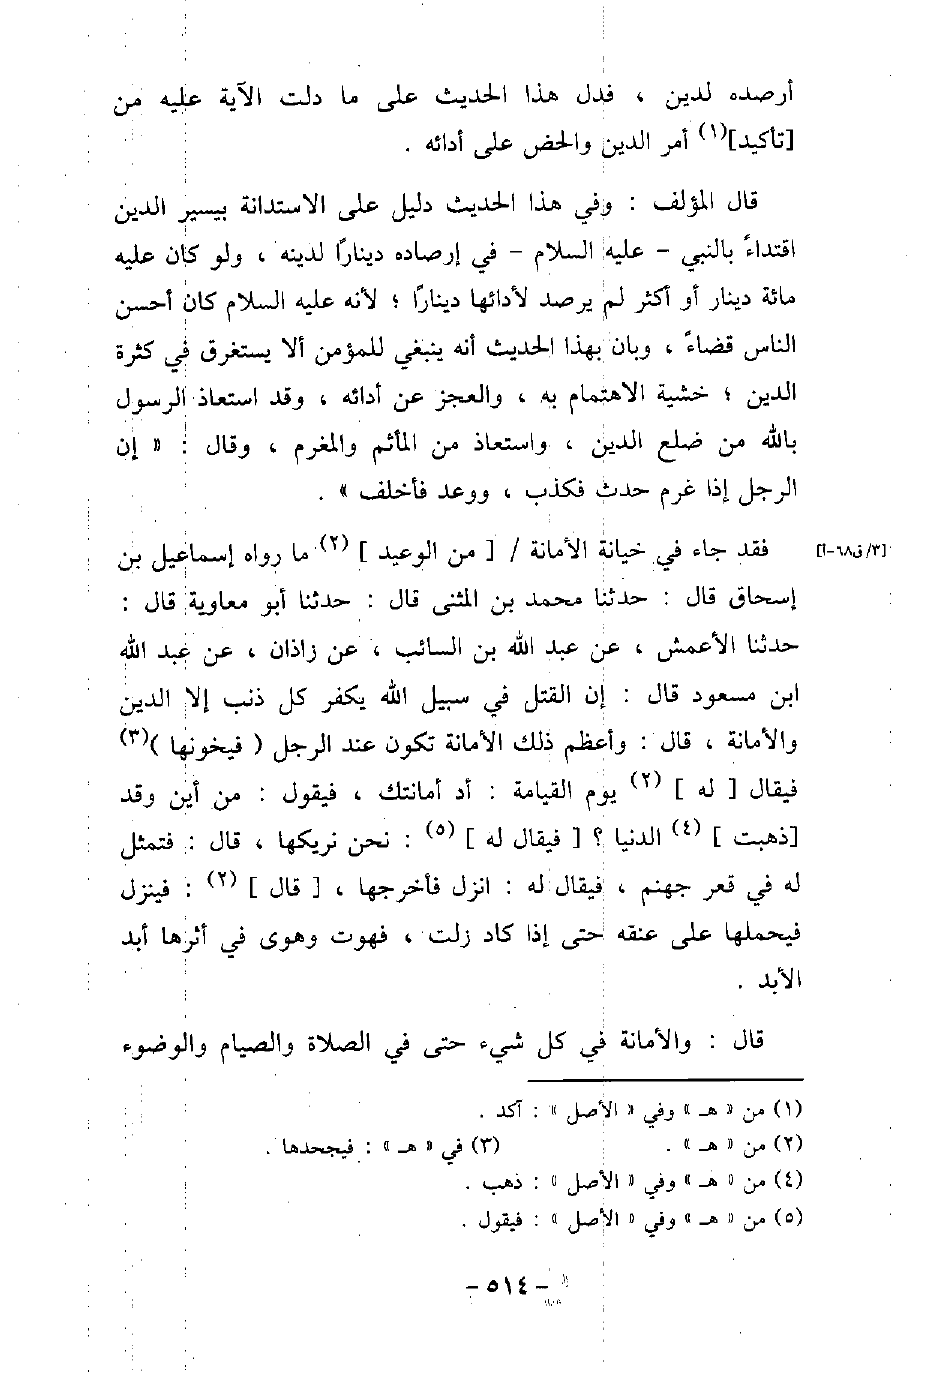 أرصده لدين ، فدل هذا الحديث على ما دلت الآية عليه من
[تأكيد](١) أمر الدين والحض على أدائه .
قال المؤلف : وفي هذا الحديث دليل على الاستدانة بيسير الدين
اقتداءً بالنبي - عليه السلام - في إرصاده دينارًا لدينه ، ولو كان عليه
مائة دينار أو أكثر لم يرصد لأدائها دينارًا ؛ لأنه عليه السلام كان أحسن
الناس قضاءً ، وبان بهذا الحديث أنه ينبغي للمؤمن ألا يستغرق في كثرة
الدين ؛ خشية الاهتمام به ، والعجز عن أدائه ، وقد استعاذ الرسول
بالله من ضلع الدين ، واستعاذ من المأثم والمغرم ، وقال : « إن
الرجل إذا غرم حدث فكذب ، ووعد فأخلف » .
[٣/ق٦٨-أ] فقد جاء في خيانة الأمانة / [ من الوعيد ] (٢) ما رواه إسماعيل بن
إسحاق قال : حدثنا محمد بن المثنى قال : حدثنا أبو معاوية قال :
حدثنا الأعمش ، عن عبد الله بن السائب ، عن زاذان ، عن عبد الله
ابن مسعود قال : إن القتل في سبيل الله يكفر كل ذنب إلا الدين
والأمانة ، قال : وأعظم ذلك الأمانة تكون عند الرجل ( فيخونها )(٣)
فيقال [ له ] (٢) يوم القيامة : أد أمانتك ، فيقول : من أين وقد
[ذهبت ] (٤) الدنيا ؟ [ فيقال له ] (٥) : نحن نريكها ، قال : فتمثل
له في قعر جهنم ، فيقال له : انزل فأخرجها ، [ قال ] (٢) : فينزل
فيحملها على عنقه حتى إذا كاد زلت ، فهوت وهوى في أثرها أبد
الأبد .
قال : والأمانة في كل شيء حتى في الصلاة والصيام والوضوء
(١) من « هـ » وفي « الأصل » : آكد .
(٢) من « هـ » . (٣) في « هـ » : فيجحدها .
(٤) من « هـ » وفي « الأصل » : ذهب .
(٥) من « هـ » وفي « الأصل » : فيقول .
- ٥١٤ -